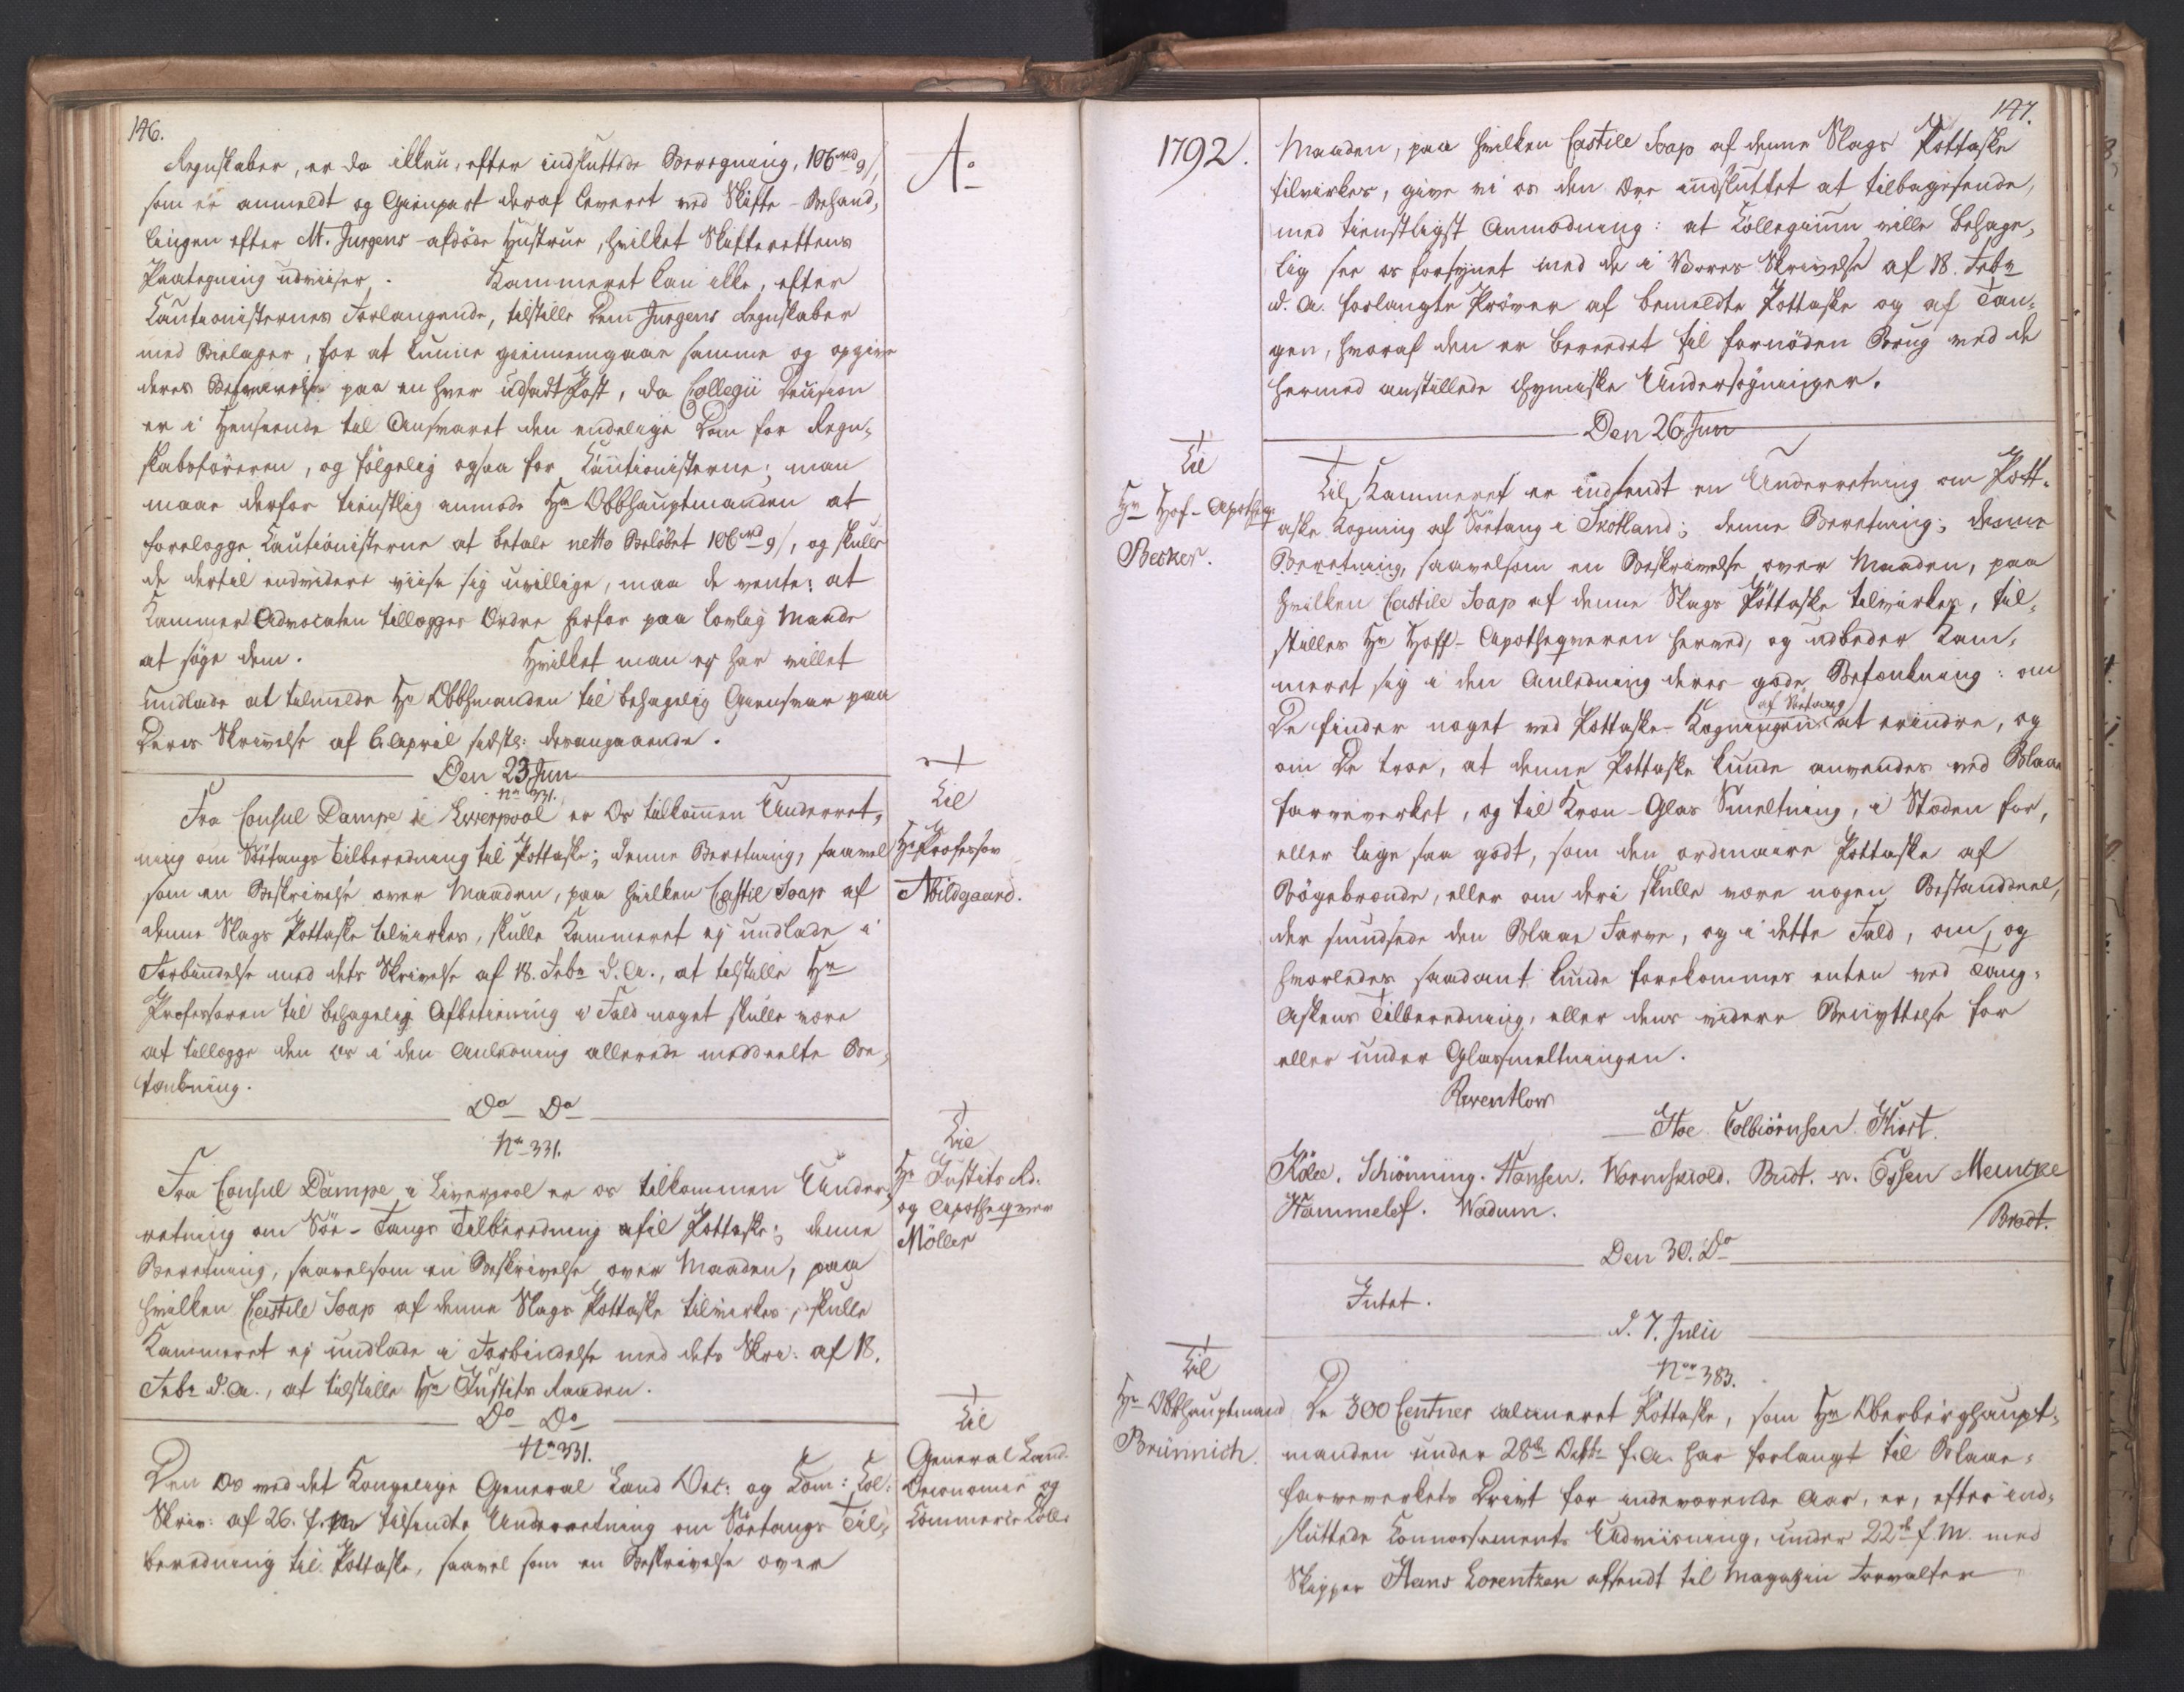 146.
Regnskaber, er da ikkun, efter indsluttede Beregning, 106 rd 9 s,
som er anmeldt og Gienpart deraf leveret ved Skifte-Behand-
lingen efter M. Jurgens afdöde Hustrue, hvilket Skifterettens
Paategning udviiser. Kammeret kan ikke, efter
Cautionisternes Forlangende, tilstille Dem Jurgens Regnskaber
med Bielager, for at kunne giennemgaae samme og opgive
deres Besvarelse paa en hver udsadt Post, da Collegii Decision
er i Henseende til Ansvaret den endelige Dom for Regn-
skabsföreren, og fölgelig ogsaa for Cautionisterne; man
maae derfor tienstlig anmode Hr Obbhauptmanden at
forelægge Cautionisterne at betale netto Belöbet 106 rd 9 s, og skulle
de dertil endvidere viise sig uvillige, maa de vente: at
Kammer Advocaten tillægges Ordre herfor paa lovlig Maade
at söge dem. Hvilket man ej har villet
undlade at tilmelde Hr Obbhmanden til behagelig Giensvar paa
Deres Skrivelse af 6 April sidstl: desangaaende.
Den 23 Jun
No 331.
Fra Consul Dampe i Liverpool er Os tilkommen Underret-
ning om Söetangs Tilberedning til Pottaske; denne Beretning, saavel
som en Beskrivelse over Maaden, paa hvilken Castile Soap af
denne Slags Pottaske tilvirkes, skulle Kammeret ej undlade i
Forbindelse med dets Skrivelse af 18. Febr d. A., at tilstille Hr
Professoren til behagelig Afbetiening i Fald noget skulle være
at tillægge den os i den Anledning allerede meddeelte Be-
tænkning.
Do Do
No 331.
Fra Consul Dampe i Liverpool er os tilkommen Under-
retning om Söe-Tangs Tilberedning til Pottaske; denne
Beretning, saavelsom en Beskrivelse over Maaden, paa
hvilken Castile Soap af denne Slags Pottaske tilvirkes, skulle
Kammeret ej undlade i Forbindelse med dets Skri: af 18.
Febr d. A., at tilstille Hr Justits Raaden.
Do Do
No 331.
Den Os ved det Kongelige General Land Oec: og Com: Col:
Skriv: af 26. f. M tilsendte Underretning om Söetangs Til-
beredning til Pottaske, saavel som en Beskrivelse over
Ao
Til
Hr Professor
Abildgaard.
Til
Hr Justits Rd.
og Apothequer
Möller
Til
General Land
Oeconomie og
Commerce Coll:
1792.
147.
Maaden, paa hvilken Castile Soap af denne Slags Pottaske
tilvirkes, give vi os den Ære indsluttet at tilbagesende,
med tienstligst Anmodning: at Collegium ville behage-
lig see os forsynet med de i Vores Skrivelse af 18. Febr
d. A. forlangte Pröver af bemeldte Pottaske og af Tan-
gen, hvoraf den er beredet til fornöden Brug ved de
hermed anstillede chymiske Undersögninger.
Den 26 Jun
Til
Hr Hof-Apotheqr
Becker.
Til Kammeret er indsendt en Underretning om Pott-
aske Kogning af Söetang i Skotland; denne Beretning; denne
Beretning, saavelsom en Beskrivelse over Maaden, paa
hvilken Castile Soap af denne Slags Pottaske tilvirkes, til-
stilles Hr Hoff-Apothequeren herved, og udbeder Kam-
meret sig i den Anledning deres gode Betænkning: om
af Söetang
De finder noget ved Pottaske-Kogningen at erindre, og
om De troe, at denne Pottaske kunde anvendes ved Blaae
farveverket, og til Kron-Glas Smeltning, i Stæden for,
eller lige saa godt, som den ordinaire Pottaske af
Bögebrænde, eller om deri skulle være nogen Bestanddeel,
der smudsede den Blaae Farve, og i dette Fald, om, og
hvorledes saadant kunde forekommes enten ved Tang-
Askens Tilberedning, eller dens videre Benyttelse for
eller under Glassmeltningen.
Reventlow
Hoe Colbiörnsen Hiort.
Kölle. Schiönning. Hansen. Wormskiold. Budt. v. Essen Meincke
Hammelef. Wadum.
Bredt.
Den 30. Do
Intet.
d. 7. Julii
No 383.
Til
Hr Obbhauptmand
Brünnich.
De 300 Centner calcineret Pottaske, som Hr Oberberghaupt-
manden under 28de Octbr f. A. har forlangt til Blaae-
farveverkets Drivt for indeværende Aar, er, efter ind-
sluttede Connossements Udviisning, under 22de f. M. med
Skipper Hans Lorentzen afsendt til Magazin Forvalter